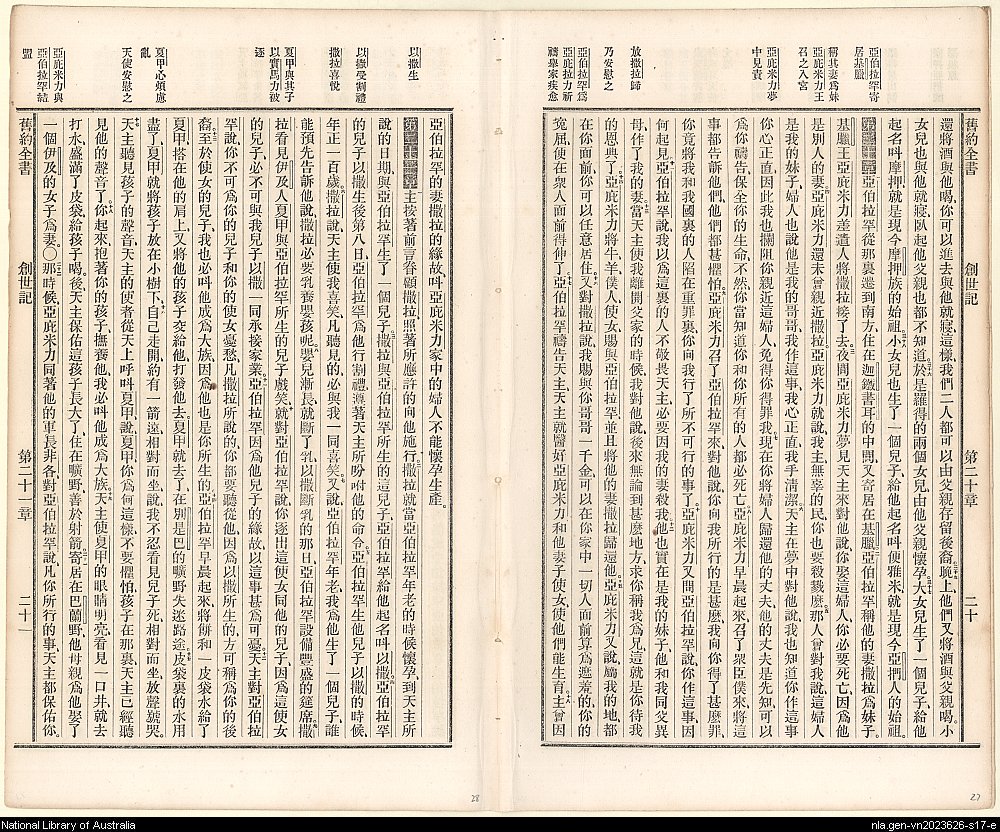 亞伯拉罕寄
居基臘
稱其妻爲妹
亞庇米力王
召之入宮
亞庇米力夢
中見責
放撒拉歸
乃安慰之
亞伯拉罕爲
亞庇米力祈
禱舉家疾愈
舊約全書 創世記 第二十章 二十
還將酒與他喝、你可以進去與他就寢、這樣、我們二人都可以由父親存留後裔。晚上他們又將酒與父親喝。小
女兒也與他就寢、臥起他父親也都不知道。於是羅得的兩個女兒、由他父親懷孕。大女兒生了一個兒子、給他
起名叫摩押、就是現今摩押族的始祖。小女兒也生了一個兒子、給他起名叫便雅米、就是現今亞捫人的始祖。
第二十章 亞伯拉罕從那裏遷到南方、住在迦鐵書耳的中間、又寄居在基臘。亞伯拉罕稱他的妻撒拉爲妹子。
基臘王亞庇米力差遣人將撒拉接了去。夜間亞庇米力夢見天主來對他說、你娶這婦人、你必要死亡、因爲他
是別人的妻。亞庇米力還未曾親近撒拉、亞庇米力就說、我主、無辜的民、你也要殺戮麽。那人曾對我說、這婦人
是我的妹子、婦人也說他是我的哥哥、我作這事、我心正直、我手清潔。天主在夢中對他說、我也知道你作這事
你心正直、因此我也攔阻你親近這婦人、免得你得罪我。現在你將婦人歸還他的丈夫、他的丈夫是先知、可以
爲你禱告、保全你的生命、不然、你當知道你和你所有的人都必死亡。亞庇米力早晨起來、召了眾臣僕來、將這
事都告訴他們、他們都甚懼怕。亞庇米力召了亞伯拉罕來、對他說、你向我所行的是甚麽、我向你得了甚麽罪、
你竟將我和我國裏的人陷在重罪裏、你向我行了所不可行的事了。亞庇米力又問亞伯拉罕說、你作這事、因
何起見。亞伯拉罕說、我以爲這裏的人不敬畏天主、必要因我的妻殺我。他也實在是我的妹子、他和我同父異
母、作了我的妻。當天主使我離開父家的時候、我對他說、後來無論到甚麽地方、求你稱我爲兄、這就是你待我
的恩典了。亞庇米力將牛羊僕人使女賜與亞伯拉罕、並且將他的妻撒拉歸還他。亞庇米力又說、屬我的地都
在你面前、你可以任意居住。又對撒拉說、我賜與你哥哥一千金、可以在你家中一切人面前算爲遮羞的、你的
寃屈、便在眾人面前得伸了。亞伯拉罕禱告天主、天主就醫好亞庇米力和他妻子使女、使他們能生育。主曾因
27
以撒生
以撒受割禮
撒拉喜悅
夏甲與其子
以實馬力被
逐
夏甲心煩慮
亂
天使安慰之
亞庇米力與
亞伯拉罕結
盟
亞伯拉罕的妻撒拉的緣故、叫亞庇米力家中的婦人不能懷孕生產。
第二十一章 主按著前言眷顧撒拉、照著所應許的向他施行。撒拉就當亞伯拉罕年老的時候懷孕、到天主所
說的日期、與亞伯拉罕生了一個兒子。撒拉與亞伯拉罕所生的這兒子、亞伯拉罕給他起名叫以撒。亞伯拉罕
的兒子以撒生後第八日、亞伯拉罕爲他行割禮、遵著天主所吩咐他的命令。亞伯拉罕生他兒子以撒的時候、
年正一百歲。撒拉說、天主使我喜笑、凡聽見的必與我一同喜笑。又說、亞伯拉罕年老、我爲他生了一個兒子、誰
能預先告訴他說、撒拉必要乳養嬰孩呢。嬰兒漸長、就斷了乳、以撒斷乳的那日、亞伯拉罕設備豐盛的筵席。撒
拉看見伊及人夏甲與亞伯拉罕所生的兒子戲笑、就對亞伯拉罕說、你逐出這使女同他的兒子、因爲這使女
的兒子必不可與我兒子以撒一同承接家業。亞伯拉罕因爲他兒子的緣故、以這事甚爲可憂。天主對亞伯拉
罕說、你不可爲你的兒子和你的使女憂愁、凡撒拉所說的、你都要聽從他、因爲以撒所生的方可稱爲你的後
裔。至於使女的兒子、我也必叫他成爲大族、因爲他也是你所生的。亞伯拉罕早晨起來、將餅和一皮袋水給了
夏甲、搭在他的肩上、又將他的孩子交給他、打發他去。夏甲就去了、在別是巴的曠野失迷路途。皮袋裏的水用
盡了、夏甲就將孩子放在小樹下、自己走開、約有一箭遠、相對而坐、說、我不忍看見兒子死、相對而坐、放聲號哭。
天主聽見孩子的聲音、天主的使者從天上呼叫夏甲說、夏甲、你爲何這樣、不要懼怕、孩子在那裏、天主已經聽
見他的聲音了。你起來抱著你的孩子、撫養他、我必叫他成爲大族。天主使夏甲的眼睛明亮、看見一口井、就去
打水盛滿了皮袋、給孩子喝。後天主保佑這孩子、長大了住在曠野、善於射箭。寄居在巴蘭野、他母親爲他娶了
一個伊及的女子爲妻。○那時候、亞庇米力同著他的軍長非各、對亞伯拉罕說、凡你所行的事、天主都保佑你。
舊約全書 創世記 第二十一章 二十一
28
National Library of Australia
nla.gen-vn2023626-s17-e